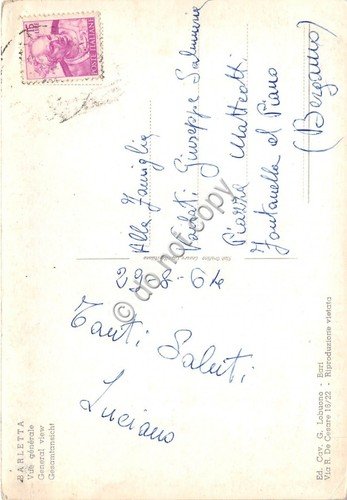 BARLETTA
Vue générale
General view
Gesamtansicht
29-8-64
Tanti Saluti
Luciano
POSTE ITALIANE
Alla Famiglia
Giuseppe
Piazza Matteotti
Fontanella al Piano
(Bergamo)
Ed. Cav. G. Lobuono - Bari
Via R. De Cesare 18/22 - Riproduzione vietata
© do not copy